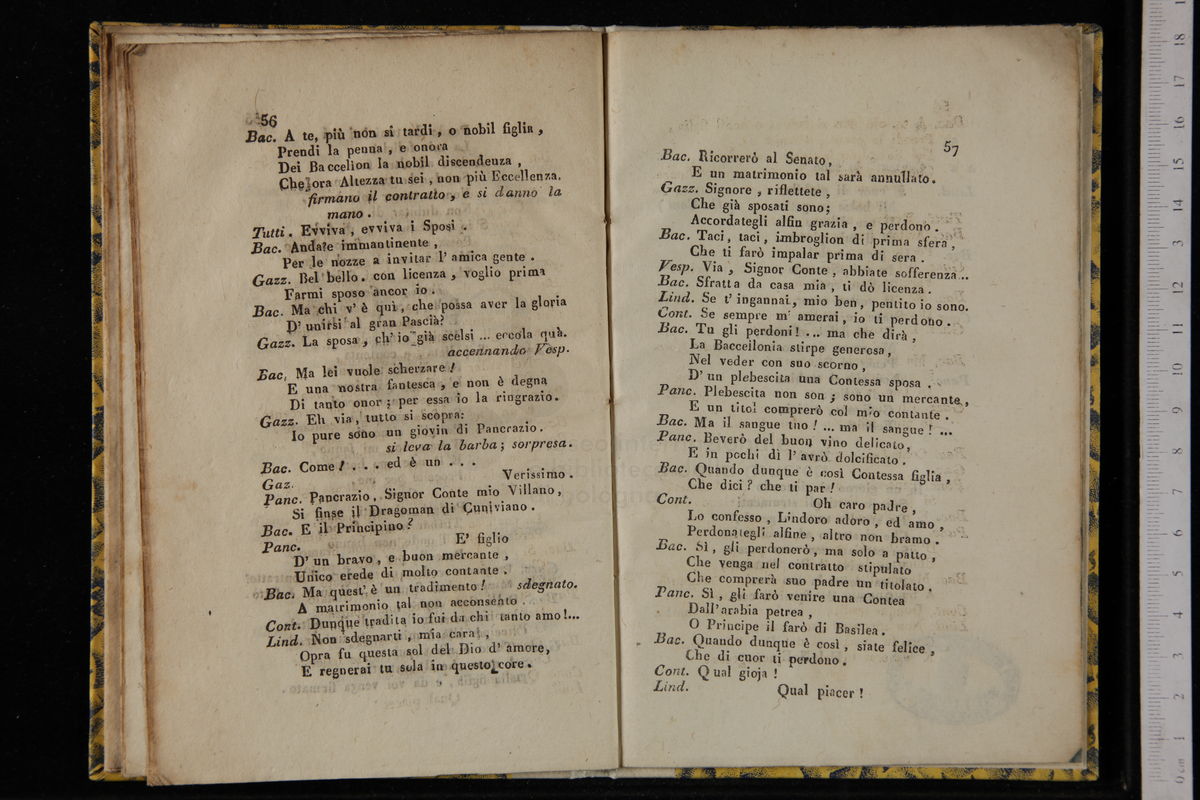 56
Bac. A te, più non si tardi, o nobil figlia,
Prendi la penna, e onora
Dei Baccellon la nobil discendenza,
Che ora Altezza tu sei, non più Eccellenza.
firmano il contratto, e si danno la
mano.
Tutti. Evviva, evviva i Sposi.
Bac. Andate immantinente,
Per le nozze a invitar l' amica gente.
Gazz. Bel bello. con licenza, voglio prima
Farmi sposo ancor io.
Bac. Ma chi v' è quì, che possa aver la gloria
D' unirsi al gran Pascià?
Gazz. La sposa, ch' io già scelsi ... eccola quà.
accennando Vesp.
Bac. Ma lei vuole scherzare!
E una nostra fantesca, e non è degna
Di tanto onor; per essa io la ringrazio.
Gazz. Eh via, tutto si scopra:
Io pure sono un giovin di Pancrazio.
si leva la barba; sorpresa.
Bac. Come! . . . ed è un . . .
Gaz. Verissimo.
Panc. Pancrazio, Signor Conte mio Villano,
Si finse il Dragoman di Cuniviano.
Bac. E il Principino?
Panc. E' figlio
D' un bravo, e buon mercante,
Unico erede di molto contante.
Bac. Ma quest' è un tradimento! sdegnato.
A matrimonio tal non acconsento.
Cont. Dunque tradita io fui da chi tanto amo!...
Lind. Non sdegnarti, mia cara,
Opra fu questa sol del Dio d' amore,
E regnerai tu sola in questo core.
57
Bac. Ricorrerò al Senato,
E un matrimonio tal sarà annullato.
Gazz. Signore, riflettete,
Che già sposati sono;
Accordategli alfin grazia, e perdono.
Bac. Taci, taci, imbroglion di prima sfera,
Che ti farò impalar prima di sera.
Vesp. Via, Signor Conte, abbiate sofferenza...
Bac. Sfratta da casa mia, ti dò licenza.
Lind. Se t' ingannai, mio ben, pentito io sono.
Cont. Se sempre m' amerai, io ti perdono.
Bac. Tu gli perdoni! ... ma che dirà,
La Baccellonia stirpe generosa,
Nel veder con suo scorno,
D' un plebescita una Contessa sposa.
Panc. Plebescita non son; sono un mercante,
E un titol comprerò col mio contante.
Bac. Ma il sangue tuo! ... ma il sangue! ...
Panc. Beverò del buon vino delicato,
E in pochi dì l' avrò dolcificato.
Bac. Quando dunque è così Contessa figlia,
Che dici? che ti par!
Cont. Oh caro padre,
Lo confesso, Lindoro adoro, ed amo,
Perdonategli alfine, altro non bramo.
Bac. Sì, gli perdonerò, ma solo a patto,
Che venga nel contratto stipulato
Che comprerà suo padre un titolato.
Panc. Sì, gli farò venire una Contea
Dall' arabia petrea,
O Principe il farò di Basilea.
Bac. Quando dunque è così, siate felice,
Che di cuor ti perdono.
Cont. Qual gioja!
Lind. Qual piacer!